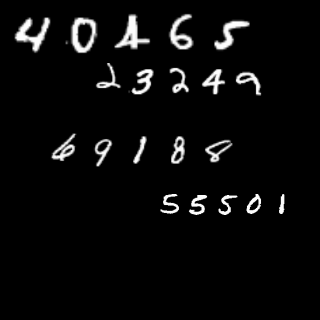 40465
23249
69188
55501